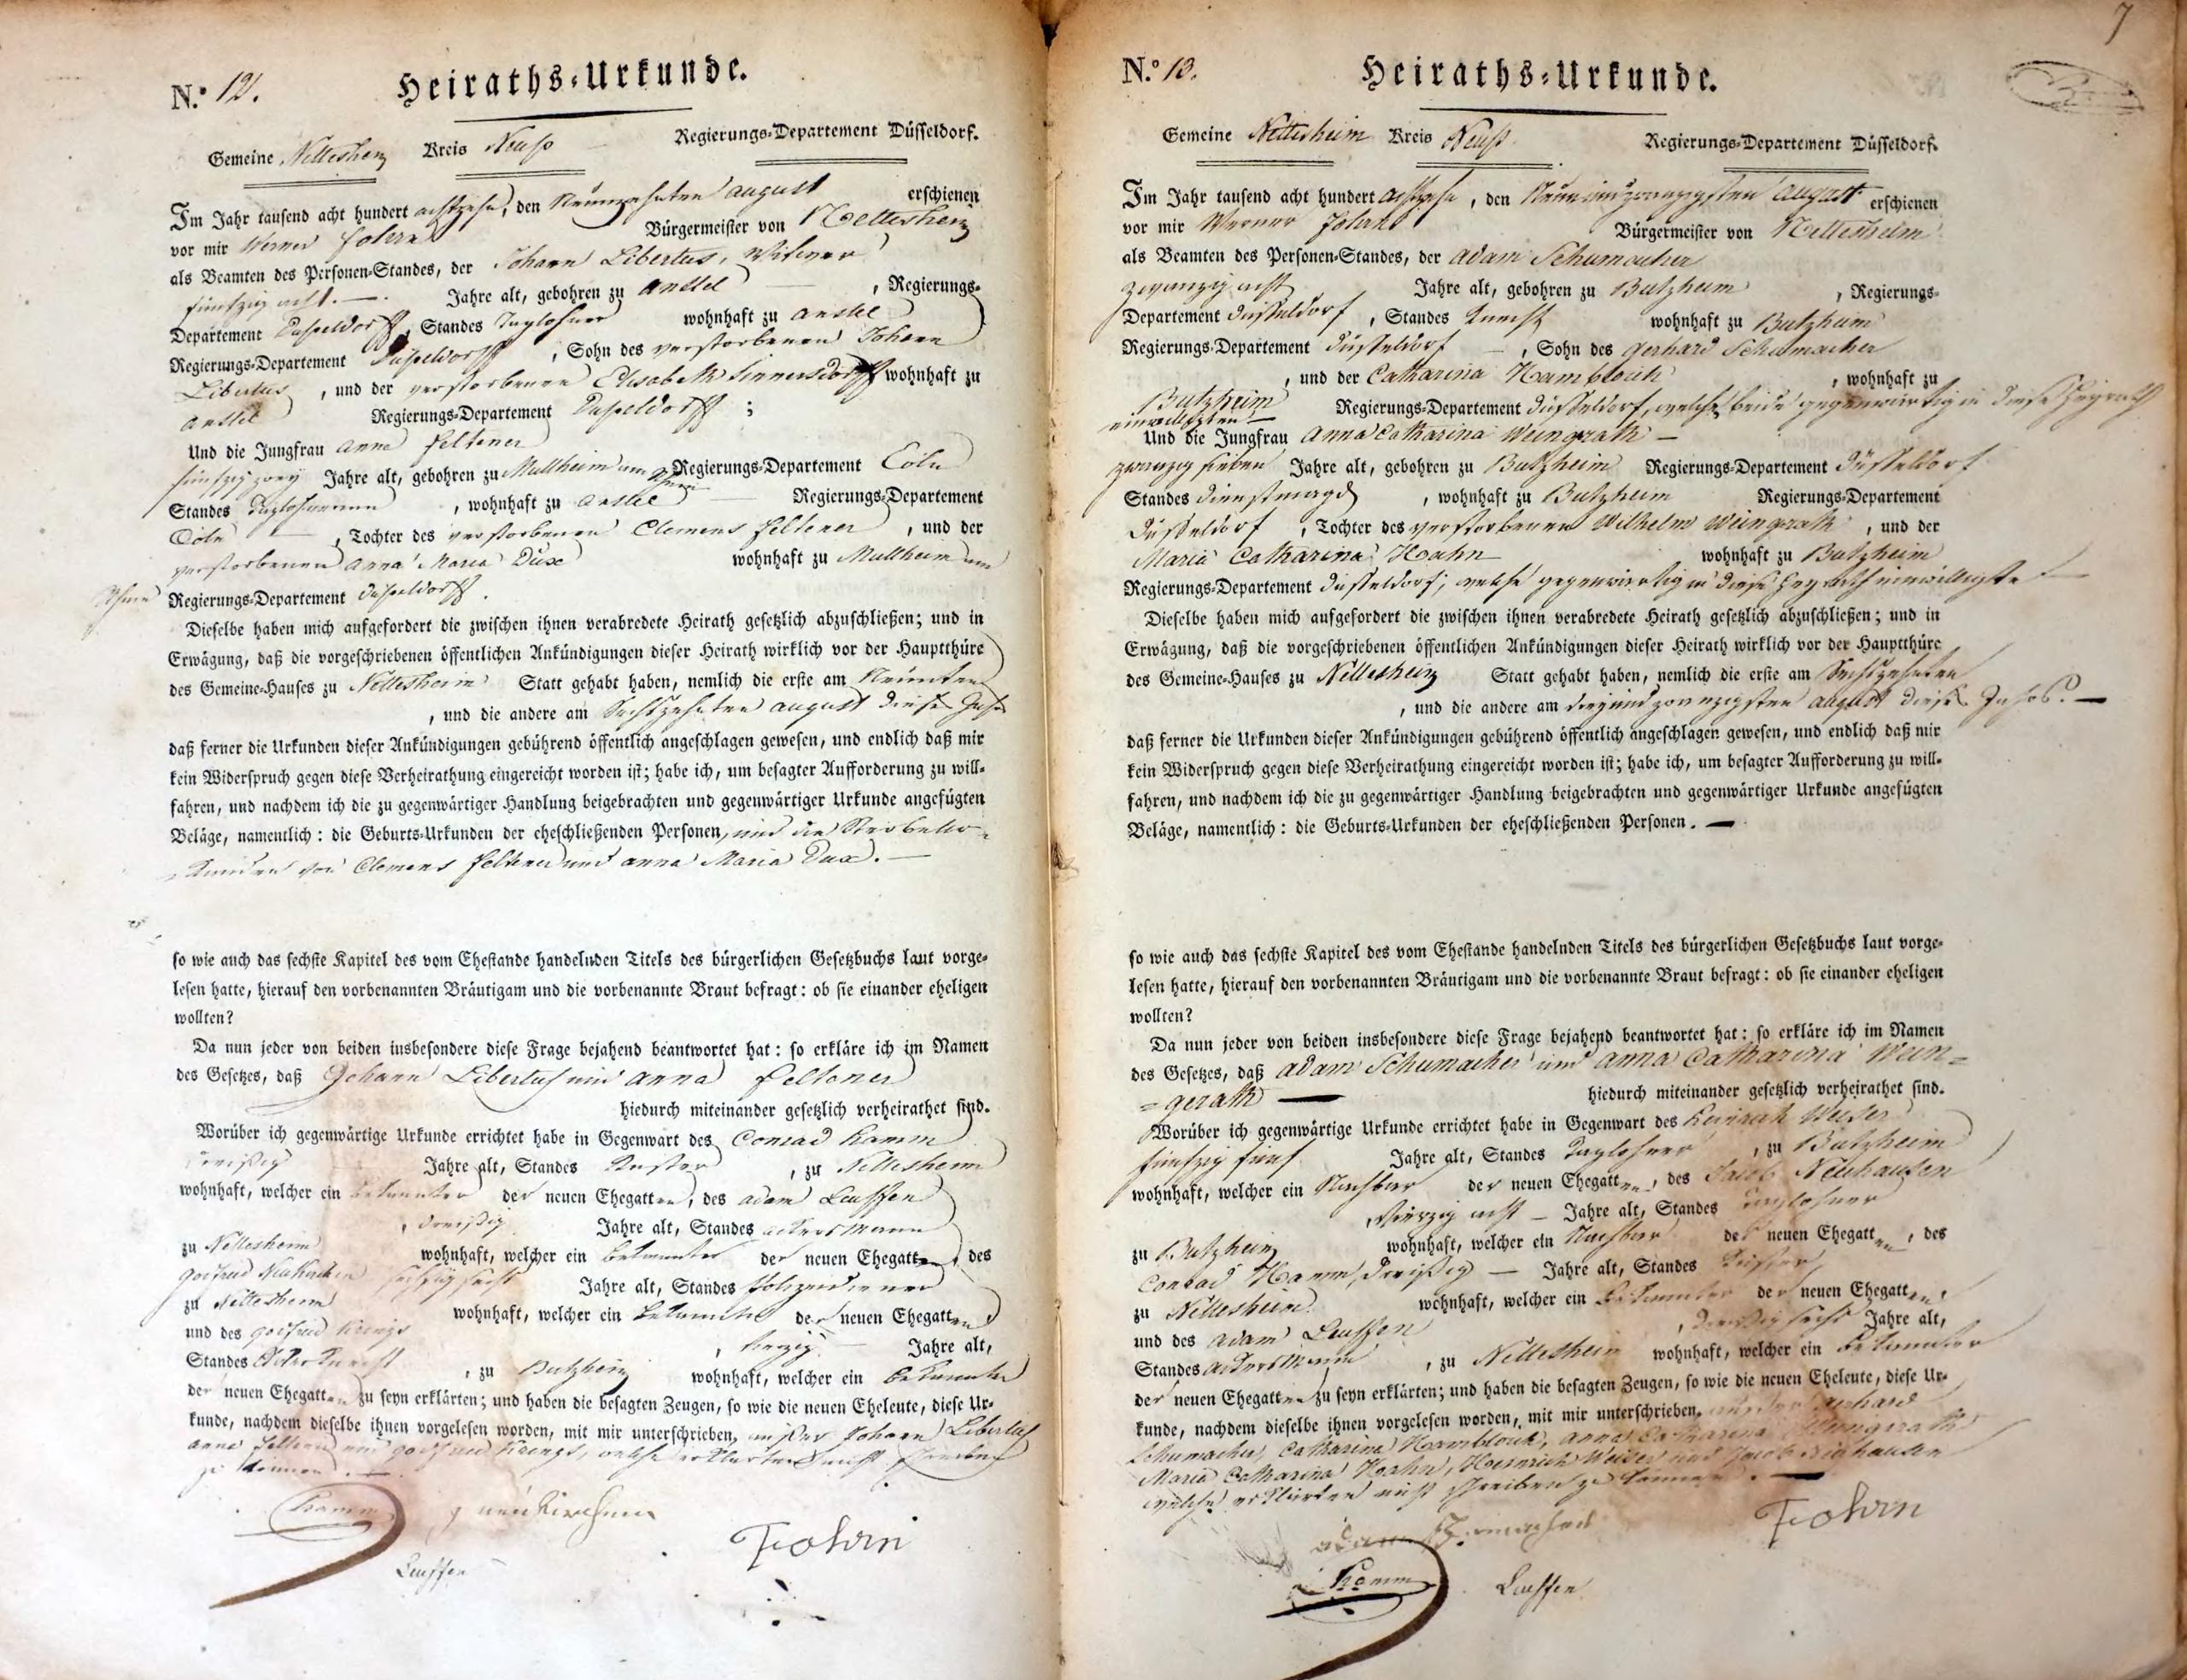 N.º 12.
Heiraths-Urkunde.
Gemeine Nettesheim Kreis Neuß Regierungs-Departement Düsseldorf.
Im Jahr tausend acht hundert achtzehn, den Neunzehnten august erschienen
vor mir Werner Fohrn Bürgermeister von Nettesheim
als Beamten des Personen-Standes, der Johann Libertus, Witwer
fünfzig acht. — Jahre alt, gebohren zu anstel, Regierungs-
Departement Düsseldorff, Standes Taglohner wohnhaft zu anstel
Regierungs-Departement Düsseldorff, Sohn des verstorbenen Johann
Libertus, und der verstorbenen Elisabeth Sinnersdorff wohnhaft zu
anstel Regierungs-Departement Düsseldorff;
Und die Jungfrau anna Feltener
fünfzig zwey Jahre alt, gebohren zu Mullheim am Rhein Regierungs-Departement Cöln
Standes Taglohnerinn, wohnhaft zu anstel Regierungs-Departement
Cöln, Tochter des verstorbenen Clemens Feltener, und der
verstorbenen anna Maria Dux wohnhaft zu Mullheim am
Rhein Regierungs-Departement Düsseldorff.
Dieselbe haben mich aufgefordert die zwischen ihnen verabredete Heirath gesetzlich abzuschließen; und in
Erwägung, daß die vorgeschriebenen öffentlichen Ankündigungen dieser Heirath wirklich vor der Hauptthüre
des Gemeine-Hauses zu Nettesheim Statt gehabt haben, nemlich die erste am Neunten
, und die andere am Sechszehnten august dieses Jahrs
daß ferner die Urkunden dieser Ankündigungen gebührend öffentlich angeschlagen gewesen, und endlich daß mir
kein Widerspruch gegen diese Verheirathung eingereicht worden ist; habe ich, um besagter Aufforderung zu will-
fahren, und nachdem ich die zu gegenwärtiger Handlung beigebrachten und gegenwärtiger Urkunde angefügten
Beläge, namentlich: die Geburts-Urkunden der eheschließenden Personen, und die Sterbeur-
kunden von Clemens Feltener und anna Maria Dux. —
so wie auch das sechste Kapitel des vom Ehestande handelnden Titels des bürgerlichen Gesetzbuchs laut vorge-
lesen hatte, hierauf den vorbenannten Bräutigam und die vorbenannte Braut befragt: ob sie einander eheligen
wollten?
Da nun jeder von beiden insbesondere diese Frage bejahend beantwortet hat: so erkläre ich im Namen
des Gesetzes, daß Johann Libertus und anna Feltener
hiedurch miteinander gesetzlich verheirathet sind.
Worüber ich gegenwärtige Urkunde errichtet habe in Gegenwart des Conrad Hamm
dreißig Jahre alt, Standes Küster, zu Nettesheim
wohnhaft, welcher ein bekannter der neuen Ehegatten, des adam Leussen
, dreißig Jahre alt, Standes ackersmann
zu Nettesheim wohnhaft, welcher ein bekannter der neuen Ehegatten, des
Gotfried Neukirchen sechszig sechs Jahre alt, Standes Polizeidiener
zu Nettesheim wohnhaft, welcher ein bekannter der neuen Ehegatten
und des Gotfried Krengs, vierzig Jahre alt,
Standes Ackerknecht, zu Butzheim wohnhaft, welcher ein bekannter
der neuen Ehegatten zu seyn erklärten; und haben die besagten Zeugen, so wie die neuen Eheleute, diese Ur-
kunde, nachdem dieselbe ihnen vorgelesen worden, mit mir unterschrieben, außer Johann Libertus
anna Feltener und Gotfried Krengs, welche erklärten nicht schreiben
zu können. —
Hamm g neükirchen
Fohrn
Leussen
7
N.º 13.
Heiraths-Urkunde.
Gemeine Nettesheim Kreis Neuß Regierungs-Departement Düsseldorf.
Im Jahr tausend acht hundert achtzehn, den Neun und zwanzigsten august erschienen
vor mir Werner Fohrn Bürgermeister von Nettesheim
als Beamten des Personen-Standes, der adam Schumacher
zwanzig acht Jahre alt, gebohren zu Butzheim, Regierungs-
Departement düsseldorf, Standes Knecht wohnhaft zu Butzheim
Regierungs-Departement düsseldorf —, Sohn des gerhard Schumacher
, und der Catharina Hambloch, wohnhaft zu
Butzheim Regierungs-Departement düsseldorf, welche beide gegenwärtig in diese Heyrath
einwilligten —
Und die Jungfrau anna Catharina Weingrath —
zwanzig sieben Jahre alt, gebohren zu Butzheim Regierungs-Departement düsseldorf
Standes dienstmagd, wohnhaft zu Butzheim Regierungs-Departement
düsseldorf, Tochter des verstorbenen Wilhelm Weingrath, und der
Maria Catharina Hahn wohnhaft zu Butzheim
Regierungs-Departement düsseldorf; welche gegenwärtig in diese Heyrath einwilligte —
Dieselbe haben mich aufgefordert die zwischen ihnen verabredete Heirath gesetzlich abzuschließen; und in
Erwägung, daß die vorgeschriebenen öffentlichen Ankündigungen dieser Heirath wirklich vor der Hauptthüre
des Gemeine-Hauses zu Nettesheim Statt gehabt haben, nemlich die erste am Sechszehnten
, und die andere am dreyundzwanzigsten august dieses Jahrs. —
daß ferner die Urkunden dieser Ankündigungen gebührend öffentlich angeschlagen gewesen, und endlich daß mir
kein Widerspruch gegen diese Verheirathung eingereicht worden ist; habe ich, um besagter Aufforderung zu will-
fahren, und nachdem ich die zu gegenwärtiger Handlung beigebrachten und gegenwärtiger Urkunde angefügten
Beläge, namentlich: die Geburts-Urkunden der eheschließenden Personen. —
so wie auch das sechste Kapitel des vom Ehestande handelnden Titels des bürgerlichen Gesetzbuchs laut vorge-
lesen hatte, hierauf den vorbenannten Bräutigam und die vorbenannte Braut befragt: ob sie einander eheligen
wollten?
Da nun jeder von beiden insbesondere diese Frage bejahend beantwortet hat: so erkläre ich im Namen
des Gesetzes, daß adam Schumacher und anna Catharina Wein=
=gerath — hiedurch miteinander gesetzlich verheirathet sind.
Worüber ich gegenwärtige Urkunde errichtet habe in Gegenwart des Heinrich Weiser
fünfzig fünf Jahre alt, Standes Taglohner, zu Butzheim
wohnhaft, welcher ein Nachbar der neuen Ehegatten, des Jacob Neuhausen
, vierzig acht — Jahre alt, Standes taglohner
zu Butzheim wohnhaft, welcher ein Nachbar der neuen Ehegatten, des
Conrad Hamm, dreißig — Jahre alt, Standes Küster
zu Nettesheim wohnhaft, welcher ein bekannter der neuen Ehegatten,
und des adam Leussen, dreißig sechs Jahre alt,
Standes ackersmann, zu Nettesheim wohnhaft, welcher ein bekannter
der neuen Ehegatten zu seyn erklärten; und haben die besagten Zeugen, so wie die neuen Eheleute, diese Ur-
kunde, nachdem dieselbe ihnen vorgelesen worden, mit mir unterschrieben, außer gerhard
Schumacher, Catharina Hambloch, anna Catharina Weingrath
Maria Catharina Hahn, Heinrich Weiser und Jacob Neuhausen
welche erklärten nicht schreiben zu können. —
adam Schumacher
Fohrn
Hamm Leussen